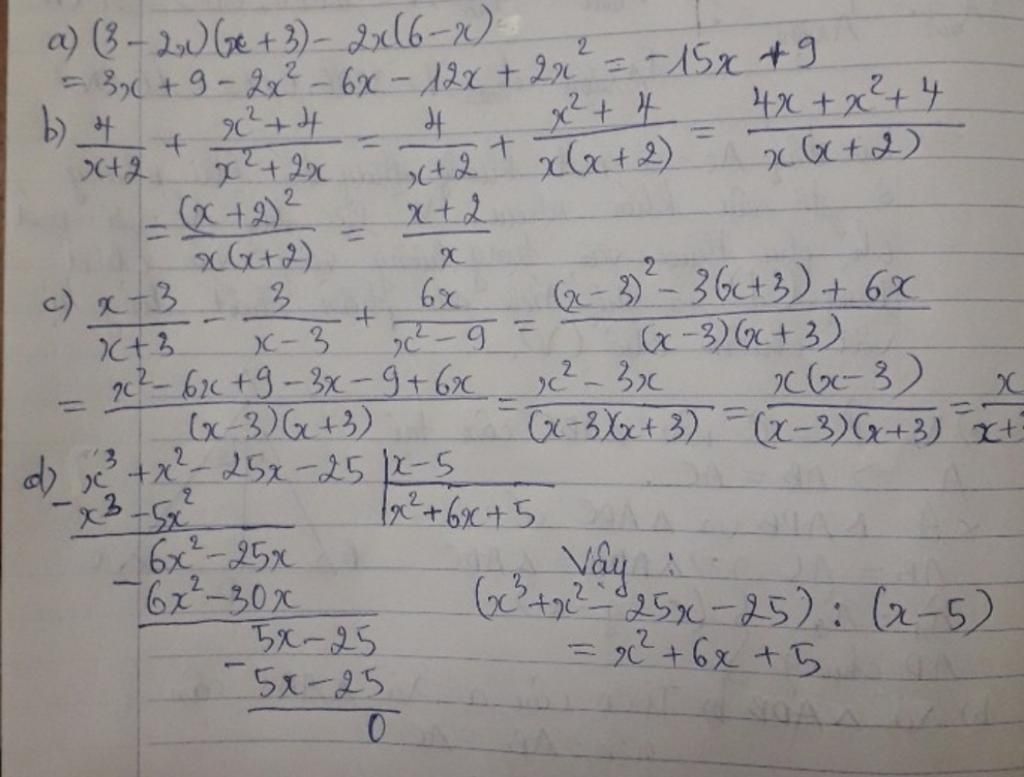 a) (3 - 2x)(x + 3) - 2x(6 - x)
= 3x + 9 - 2x² - 6x - 12x + 2x² = -15x + 9
b) 4/(x+2) + (x² + 4)/(x² + 2x) = 4/(x+2) + (x² + 4)/(x(x+2)) = (4x + x² + 4)/(x(x+2))
= (x+2)²/(x(x+2)) = (x+2)/x
c) (x-3)/(x+3) - 3/(x-3) + 6x/(x² - 9) = ((x-3)² - 3(x+3) + 6x)/((x-3)(x+3))
= (x² - 6x + 9 - 3x - 9 + 6x)/((x-3)(x+3)) = (x² - 3x)/((x-3)(x+3)) = x(x-3)/((x-3)(x+3)) = x/(x+
d) x³ + x² - 25x - 25 | x - 5
- x³ - 5x² | x² + 6x + 5
6x² - 25x
- 6x² - 30x
5x - 25
- 5x - 25
0
Vậy :
(x³ + x² - 25x - 25) : (x - 5)
= x² + 6x + 5